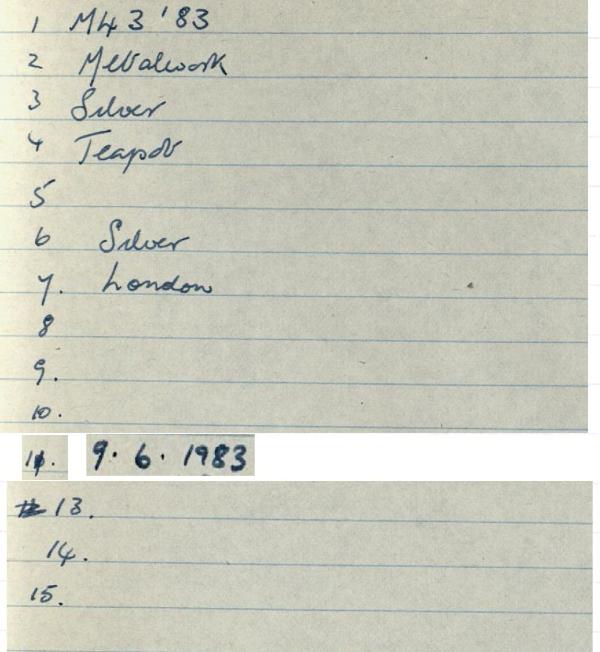 1 M43 '83
2 Metalwork
3 Silver
4 Teapot
5
6 Silver
7. London
8
9.
10.
11. 9. 6. 1983
13.
14.
15.